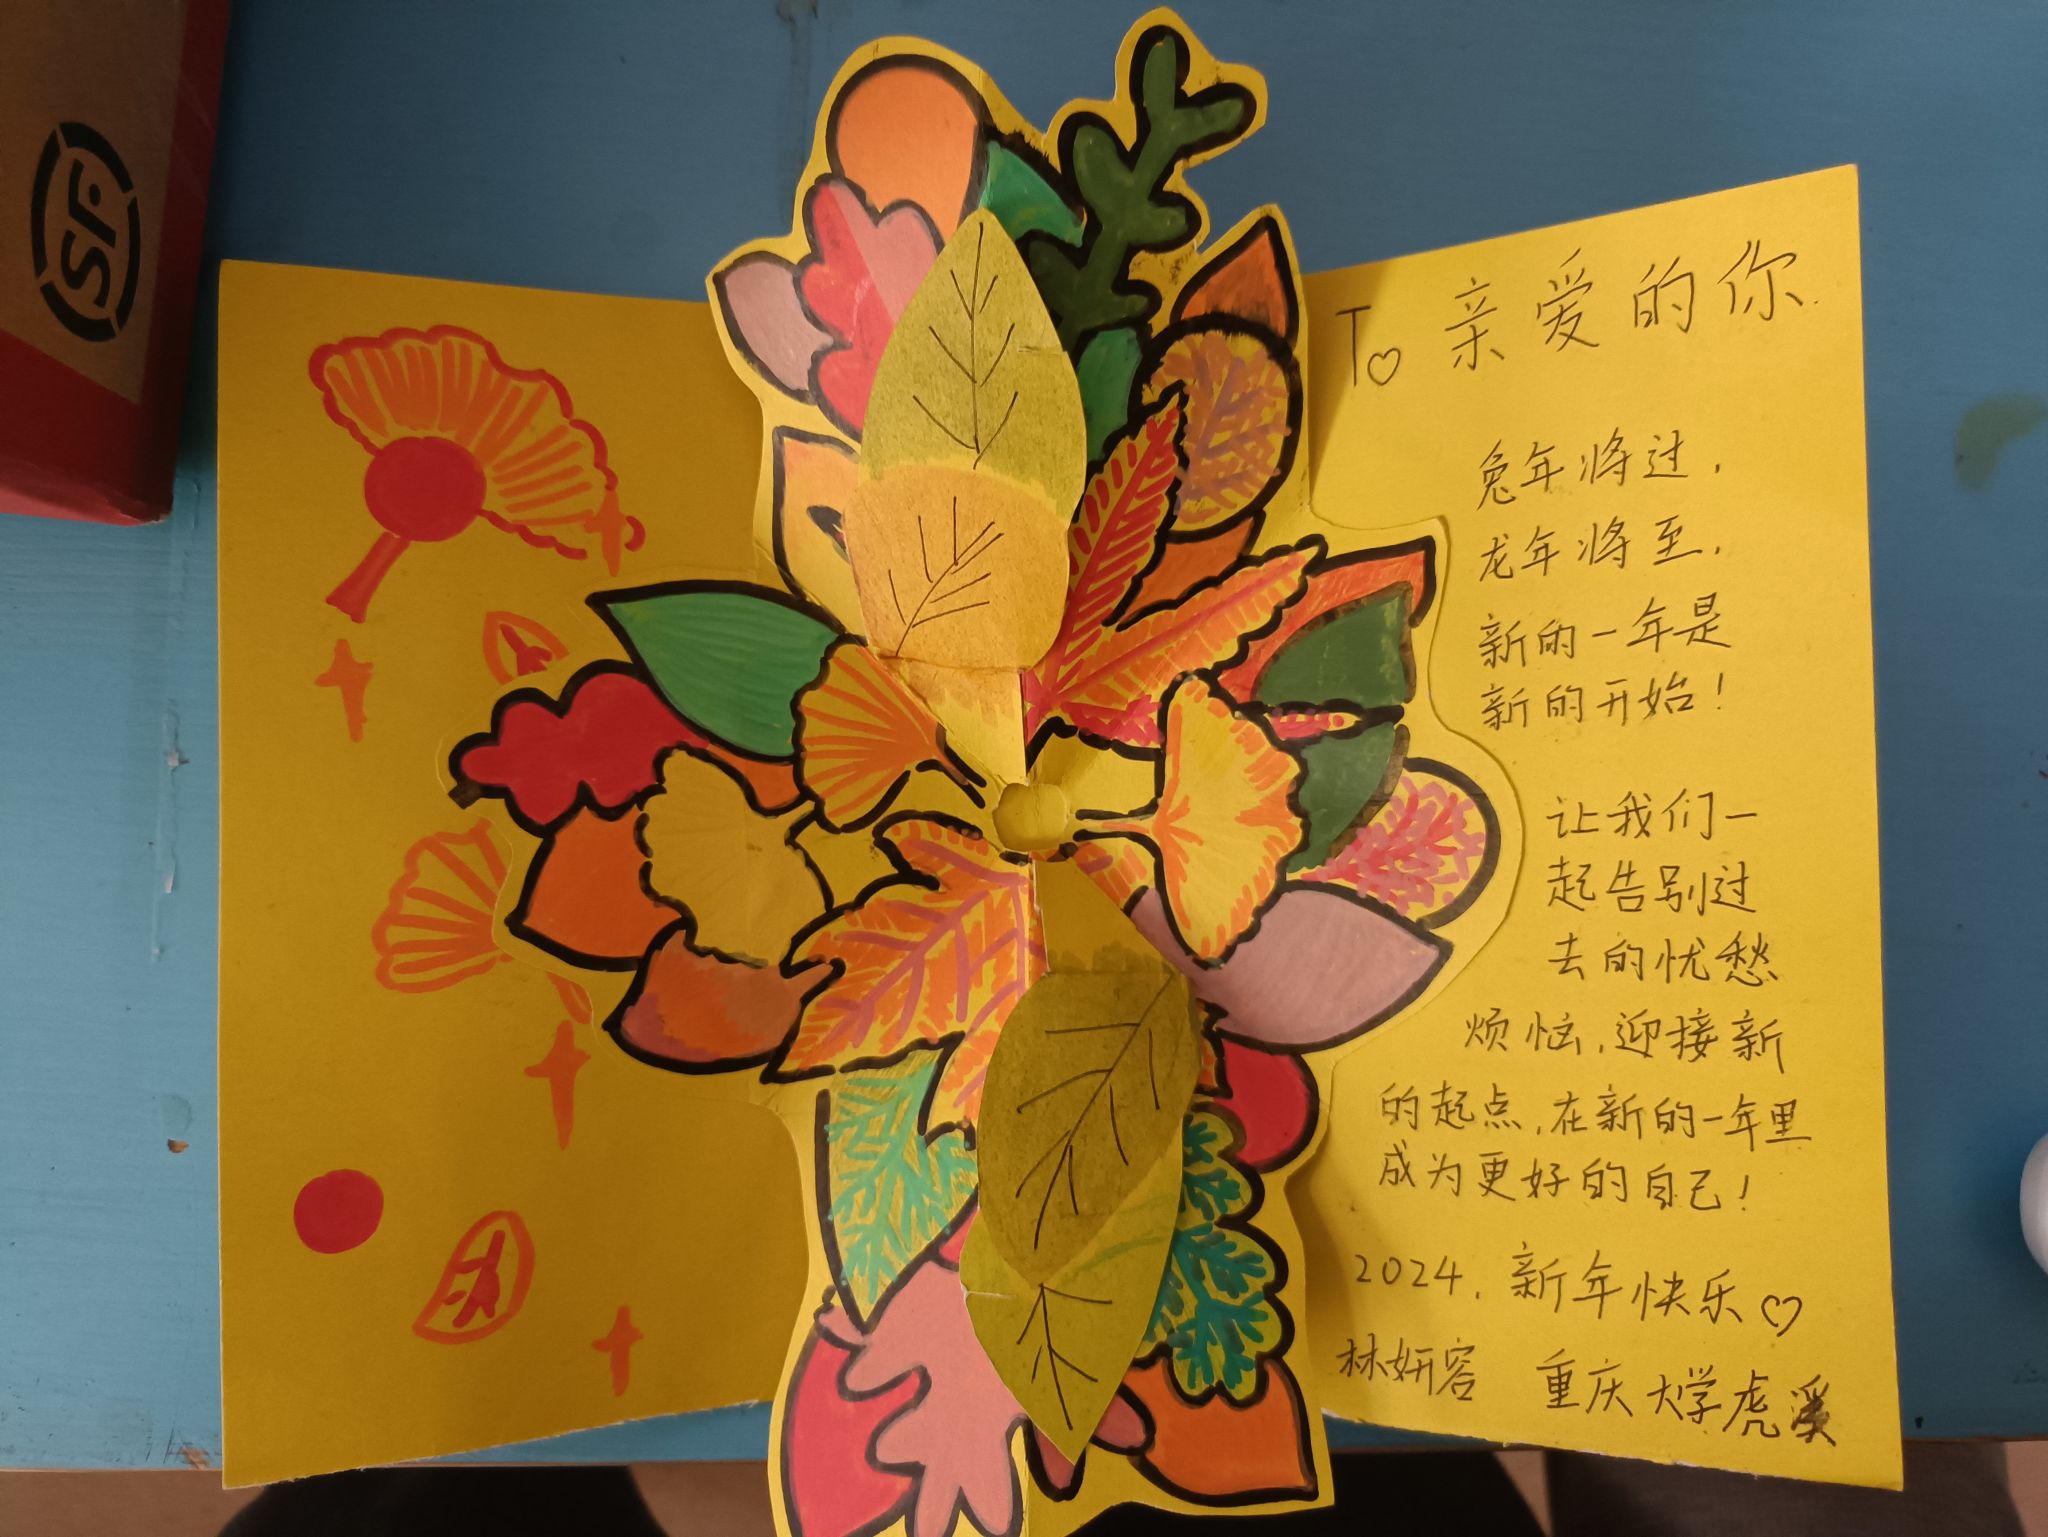 SF
To 亲爱的你
兔年将过，
龙年将至，
新的一年是
新的开始！
让我们一
起告别过
去的忧愁
烦恼，迎接新
的起点，在新的一年里
成为更好的自己！
2024，新年快乐♡
林妍容 重庆大学虎溪